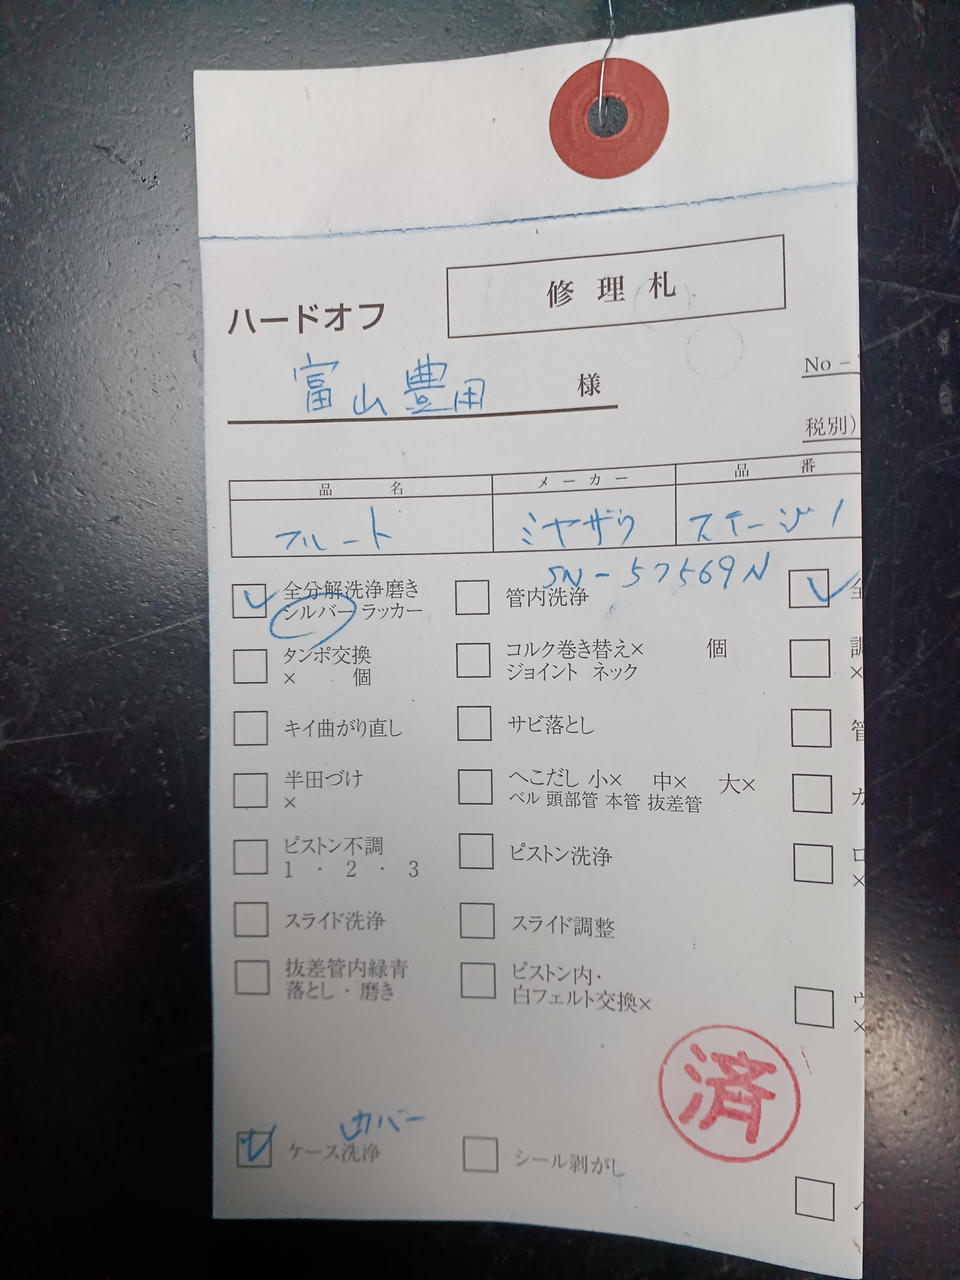 修理札
ハードオフ
富山豊田 様
No -
税別)
品名 メーカー 品番
フルート ミヤザワ ステージ1
SN-57569N
全分解洗浄磨き
シルバー ラッカー
管内洗浄
全
タンポ交換
× 個
コルク巻き替え× 個
ジョイント ネック
調
×
キイ曲がり直し
サビ落とし
管
半田づけ
×
へこだし 小× 中× 大×
ベル 頭部管 本管 抜差管
ピストン不調
1 ・ 2 ・ 3
ピストン洗浄
×
スライド洗浄
スライド調整
抜差管内緑青
落とし・磨き
ピストン内・
白フェルト交換×
×
済
カバー
ケース洗浄
シール剥がし